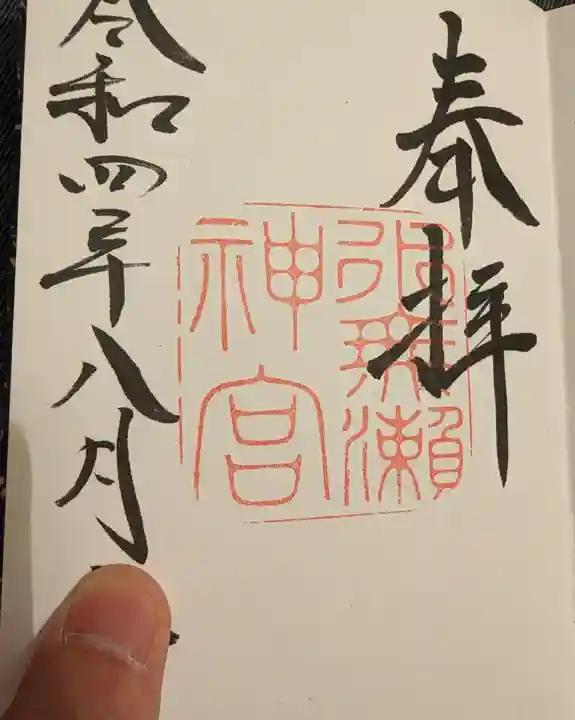 奉拝
無瀬
神宮
令和四年八月